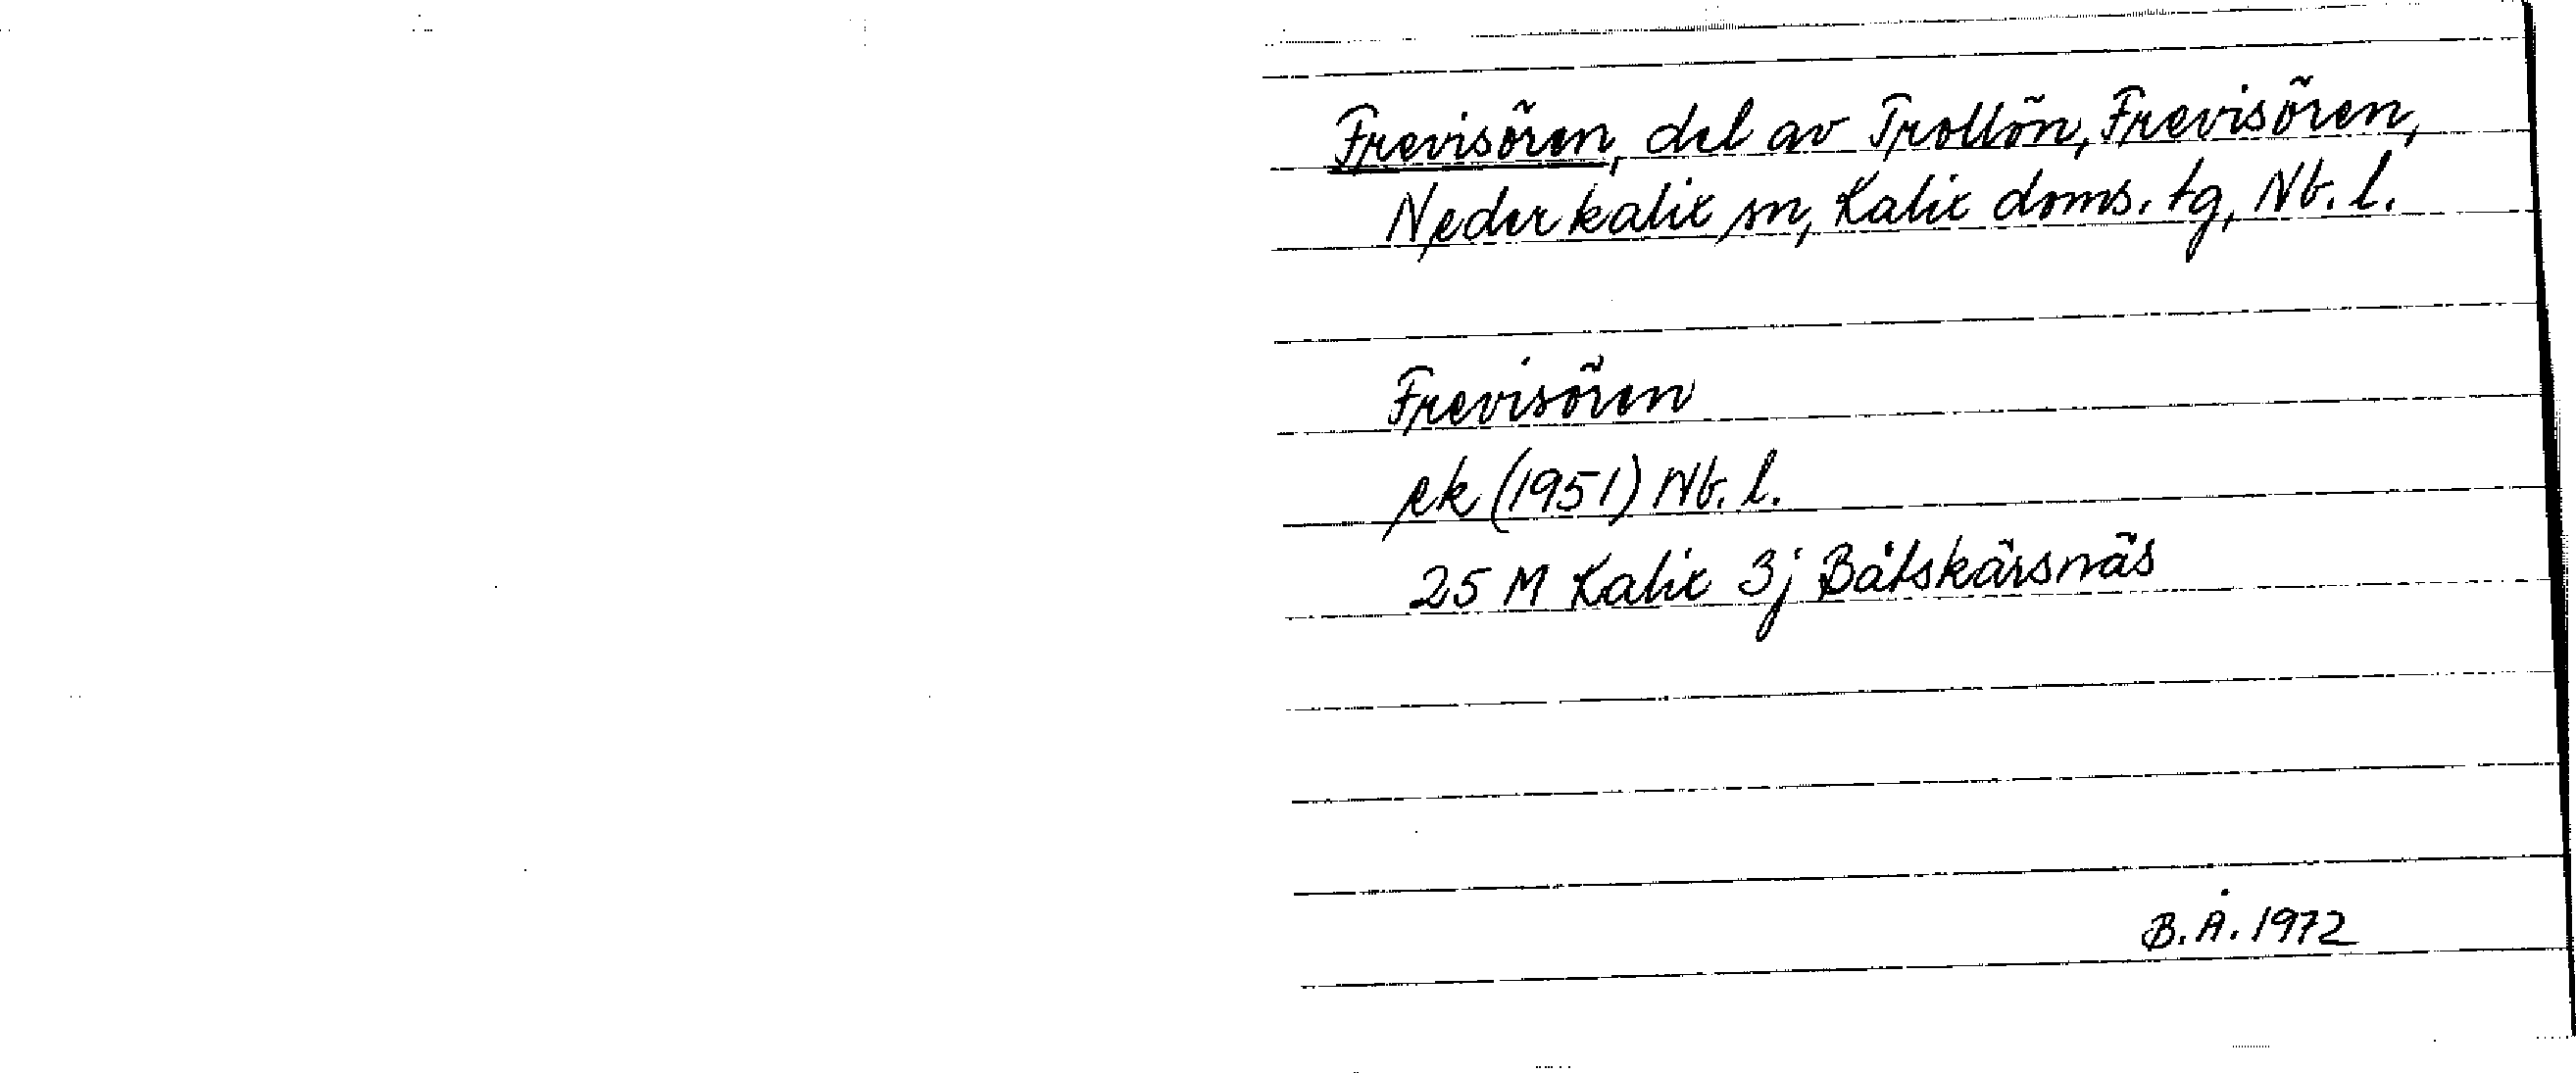 Frevisören, del av Trollön, Frevisören,
Nederkalix sn, Kalix doms. tg, Nb. l.
Frevisören
ek (1951) Nb. l.
25 M Kalix 3j Båtskärsnäs
B. Å. 1972